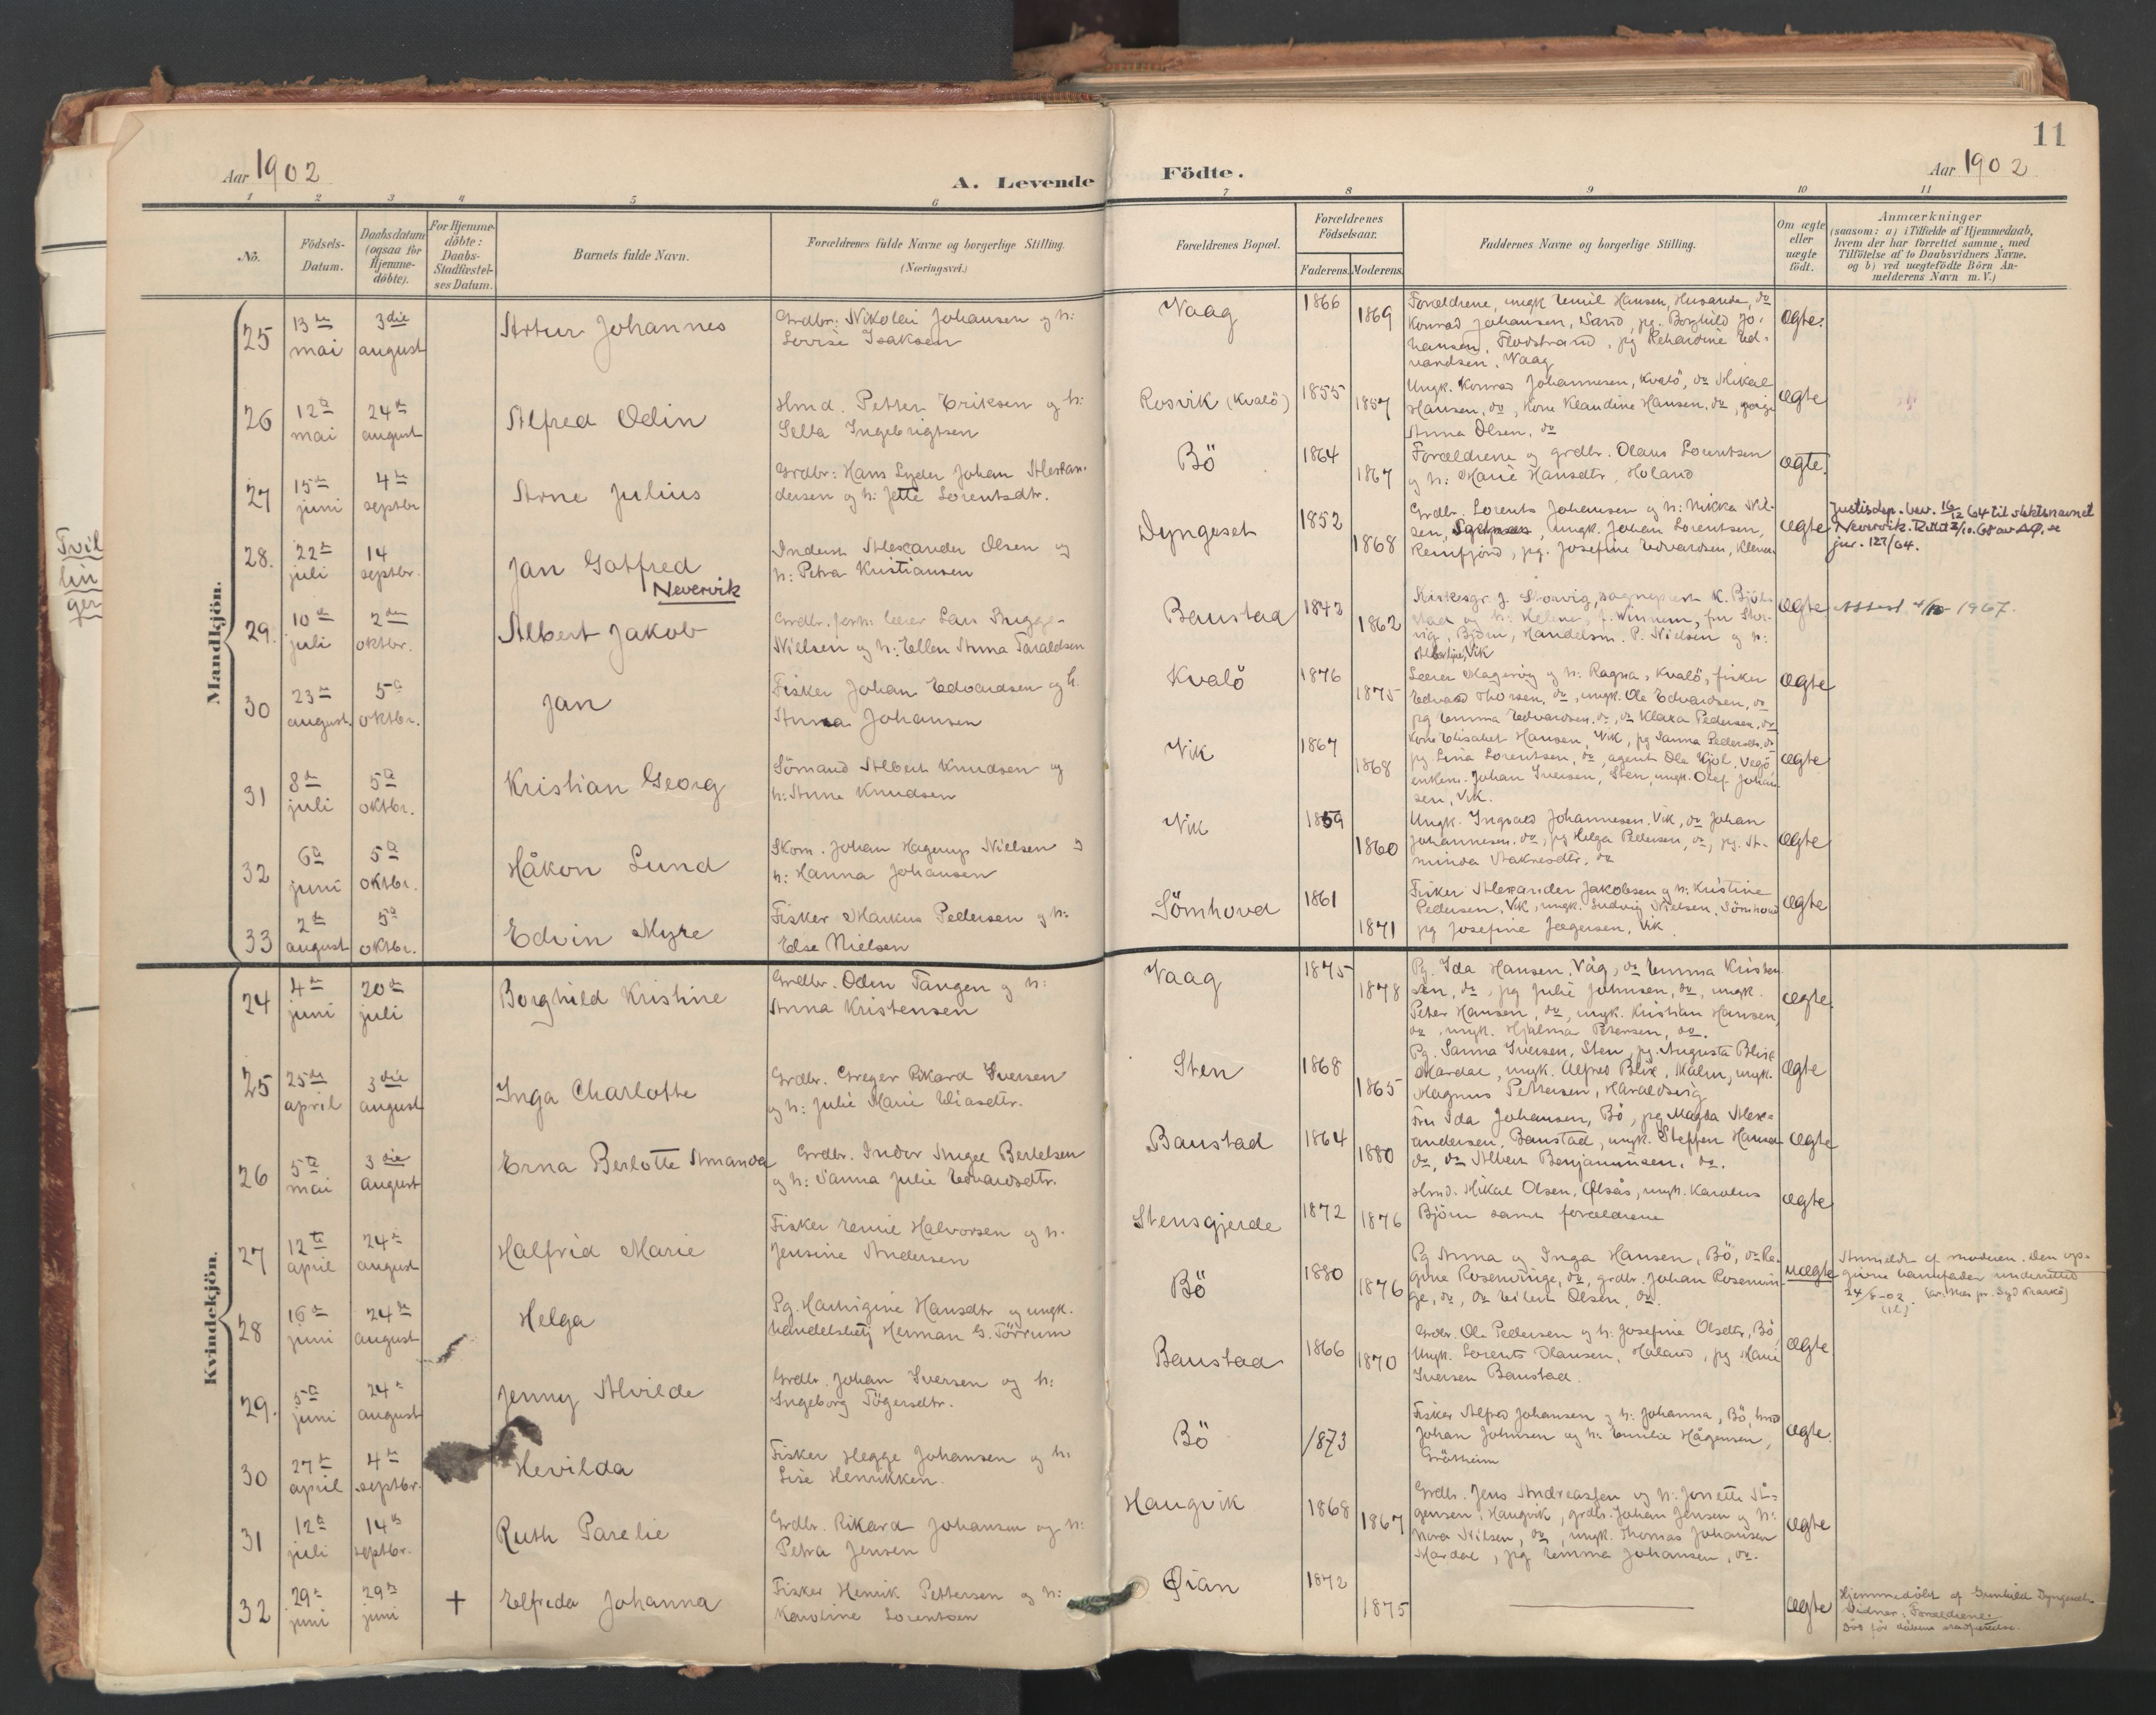 11
Aar 1902
A. Levende Födte.
Aar 1902
1 2 3 4 5 6 7 8 9 10 11
No.
Födsels-Datum.
Daabsdatum (ogsaa för Hjemme-döbte).
For Hjemme-döbte: Daabs-Stadfæstel-ses Datum.
Barnets fulde Navn.
Forældrenes fulde Navne og borgerlige Stilling.
(Næringsvei.)
Forældrenes Bopæl.
Forældrenes Födselsaar.
Faderens. Moderens.
Faddernes Navne og borgerlige Stilling.
Om ægte eller uægte födt.
Anmærkninger
(saasom: a) i Tilfælde af Hjemmedaab,
hvem der har forrettet samme, med
Tilföielse af to Daabsvidners Navne.
og b) ved uægtefödte Börn An-
melderens Navn m.V.)
Tvil
lin
ger
Mandkjön.
25 13de mai 3die august Artur Johannes
Grdbr. Nikolai Johansen og h:
Lovise Isaksen
Vaag 1866 1869
Forældrene, ungk Emil Hansen, Husande, do
Konrad Johansen, Sand, pg. Borghild Jo-
hansen, Flodstrand, pg Rehardine Ed-
vardsen, Vaag
ægte.
26 12te mai 24de august Alfred Odin
Hmd. Petter Eriksen og h:
Sella Ingebrigtsen
Rosvik (Kvalö) 1855 1857
Ungk. Konrad Johannesen, Kvalö, do Mikal
Hansen, do, Kone Klaudine Hansen, do, pige
Anna Olsen, do
ægte
27 15de juni 4de septbr Arne Julius
Grdbr: Hans Lyder Johan Alexan-
dersen og h: Jette Lorentsdtr.
Bö 1864 1867
Forældrene og grdbr. Olaus Lorentsen
og h: Marie Hansdtr, Holand
ægte.
28. 22de juli 14 septbr. Jan Gotfred
Nevervik
Inderst Alexander Olsen og
h: Petra Kristiansen
Dyngeset 1852 1868
Grdbr. Lorents Johansen og h: Mikka Nil-
sen, ungk. Johan Lorentsen,
Remfjord, pg. Josefine Edvardsen,
ægte
Justisdep. bev. 16/12 64 til slektsnavnet
Nevervik. Rettet 2/10.68 av se
jnr. 127/64.
29. 10de juli 2den oktbr. Albert Jakob
Grdbr. forh. lærer Lars Brügge-
Nielsen og h: Ellen Anna Taraldsen
Baustad 1842 1862
Kirkesgr. J. Storvig, sogneprest K. Bjöl-
stad og h: Helene, f. Winnem, fru Stor-
vig, Björn, Handelsm. P. Nielsen og h:
Albertine, Vik
ægte
Attest 1967.
30 23de august 5te oktbr. Jan
Fisker Johan Edvardsen og h.
Anna Johansen
Kvalö 1876 1875
Lærer Hagervig og h: Ragna, Kvalö, fisker
Edvard Thorsen, do, ungk. Ole Edvardsen, do
pg Emma Edvardsen, do, do Klara Pedersen, do
ægte
31 8de juli 5te oktbr. Kristian Georg
Sömand Albert Knudsen og
h: Anne Knudsen
Vik 1867 1868
Kone Elisabet Hansen, Vik, pg Sanna Pedersdtr. do
pg. Lina Lorentsen, do, agent Ole Kjöl. Vegö
enkem. Johan Iversen, Sten, ungk. Olef Johan-
sen, Vik.
ægte
32 6te juni 5te oktbr. Håkon Lund
Skom. Johan Hagerup Nielsen og
h: Hanna Johansen
Vik 1859 1860
Ungk. Ingvald Johannesen, Vik, do Johan
Johannesen, do, pg Helga Pedersen, do, pg. A-
minda Isaksdtr. do
ægte
33 2de august 5te oktbr. Edvin Myre
Fisker Markus Pedersen og h:
Else Nielsen
Sömhovd 1861 1871
Fisker Alexander Jakobsen og h: Kristine
Pedersen, Vik, ungk. Ludvig Nielsen, Sömhovd
pg Josefine Jægersen, Vik
ægte
Kvindekjön.
24 4de juni 20de juli Borghild Kristine
Grdbr. Odin Tangen og h:
Anna Kristensen
Vaag 1875 1878
Pg. Ida Hansen, Våg, do Emma Kristen-
sen, do, pg Julie Johnsen, do, ungk.
Peter Hansen, do, ungk. Kristian Hansen,
do, ungk. Hjalmar Petersen, do.
ægte.
25 25de april 3die august Inga Charlotte
Grdbr. Greger Rikard Iversen
og h: Julie Marie Eliasdtr.
Sten 1868 1865
Pg. Sanna Iversen, Sten, pg. Augusta Blix
Mardal, ungk. Alfred Blix, Malm, ungk.
Magnus Pettersen, Haraldsvig
ægte
26 5te mai 3die august Erna Berlotte Amanda
Grdbr. Indor Angel Bertelsen
og h: Sanna Julie Edvardsdtr.
Baustad 1864 1880
Fru Ida Johansen, Bö, pg Magda Alex-
andersen, Baustad, ungk. Steffen Hansen
do, do Albert Benjaminsen, do.
ægte
27 12te april 24de august Halfrid Marie
Fisker Emil Halvorsen og h.
Jensine Andersen
Stensgjerde 1872 1876
Hmd. Mikal Olsen, Ølsås, ungk. Karolus
Björn samt forældrene
ægte
28 16de juni 24de august Helga
Pg. Hartvigine Hansdtr og ungk.
handelsbetj Herman G. Törrum
Bö 1880 1876
Pg Anna og Inga Hansen, Bö, do Re-
gine Rosenvinge, do, grdbr. Johan Rosenvin-
ge, do, do Eilert Olsen, do.
uægte
Anmeldt af moderen. Den op-
givne barnefader underrettet
24/8-02.
29. 5te juni 24de august Jenny Alvilde
Grdbr. Johan Iversen og h:
Ingeborg Tögersdtr.
Baustad 1866 1870
Grdbr. Ole Pedersen og h: Josefine Olsdtr, Bö,
Ungk. Lorents Olausen, Haland, pg Marie
Iversen Baustad.
ægte
30 27de april 4de septbr. Hevilda
Fisker Hegge Johansen og h:
Lise Henrikken.
Bö 1873
Fisker Alfred Johansen og h: Johanna, Bö, hmd
Johan Johnsen og h: Emilie Hågensen,
Gråtheim
ægte.
31 12te juli 14de septbr. Ruth Parelie
Grdbr. Rikard Johansen og h:
Petra Jensen
Haugvik 1868 1867
Grdbr. Jens Andreassen og h: Jonette Hå-
gensen, Haugvik, grdbr. Johan Jensen og h:
Nora Nilsen, do, ungk. Thomas Johansen
Mardal, pg Emma Johansen, do.
ægte
32 29de juni 29de juni + Elfreda Johanna
Fisker Henrik Pettersen og h:
Karoline Lorentsen
Øian 1872 1875
ægte
Hjemmedöbt af Gunhild Dyngeseth
Vidner: Forældrene.
Död för dåbens stadfæstelse.